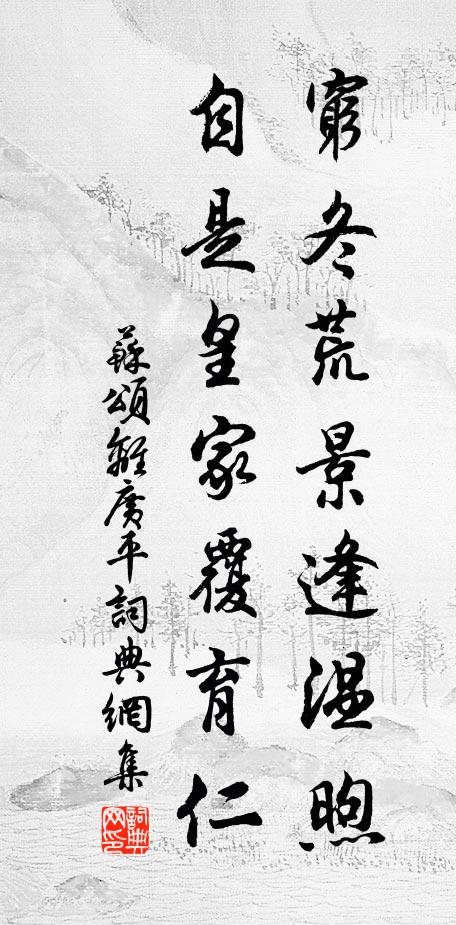 窮冬荒景逢溫煦
自是皇家覆育仁
蘇頌離廣平詞典網集
詞典网印